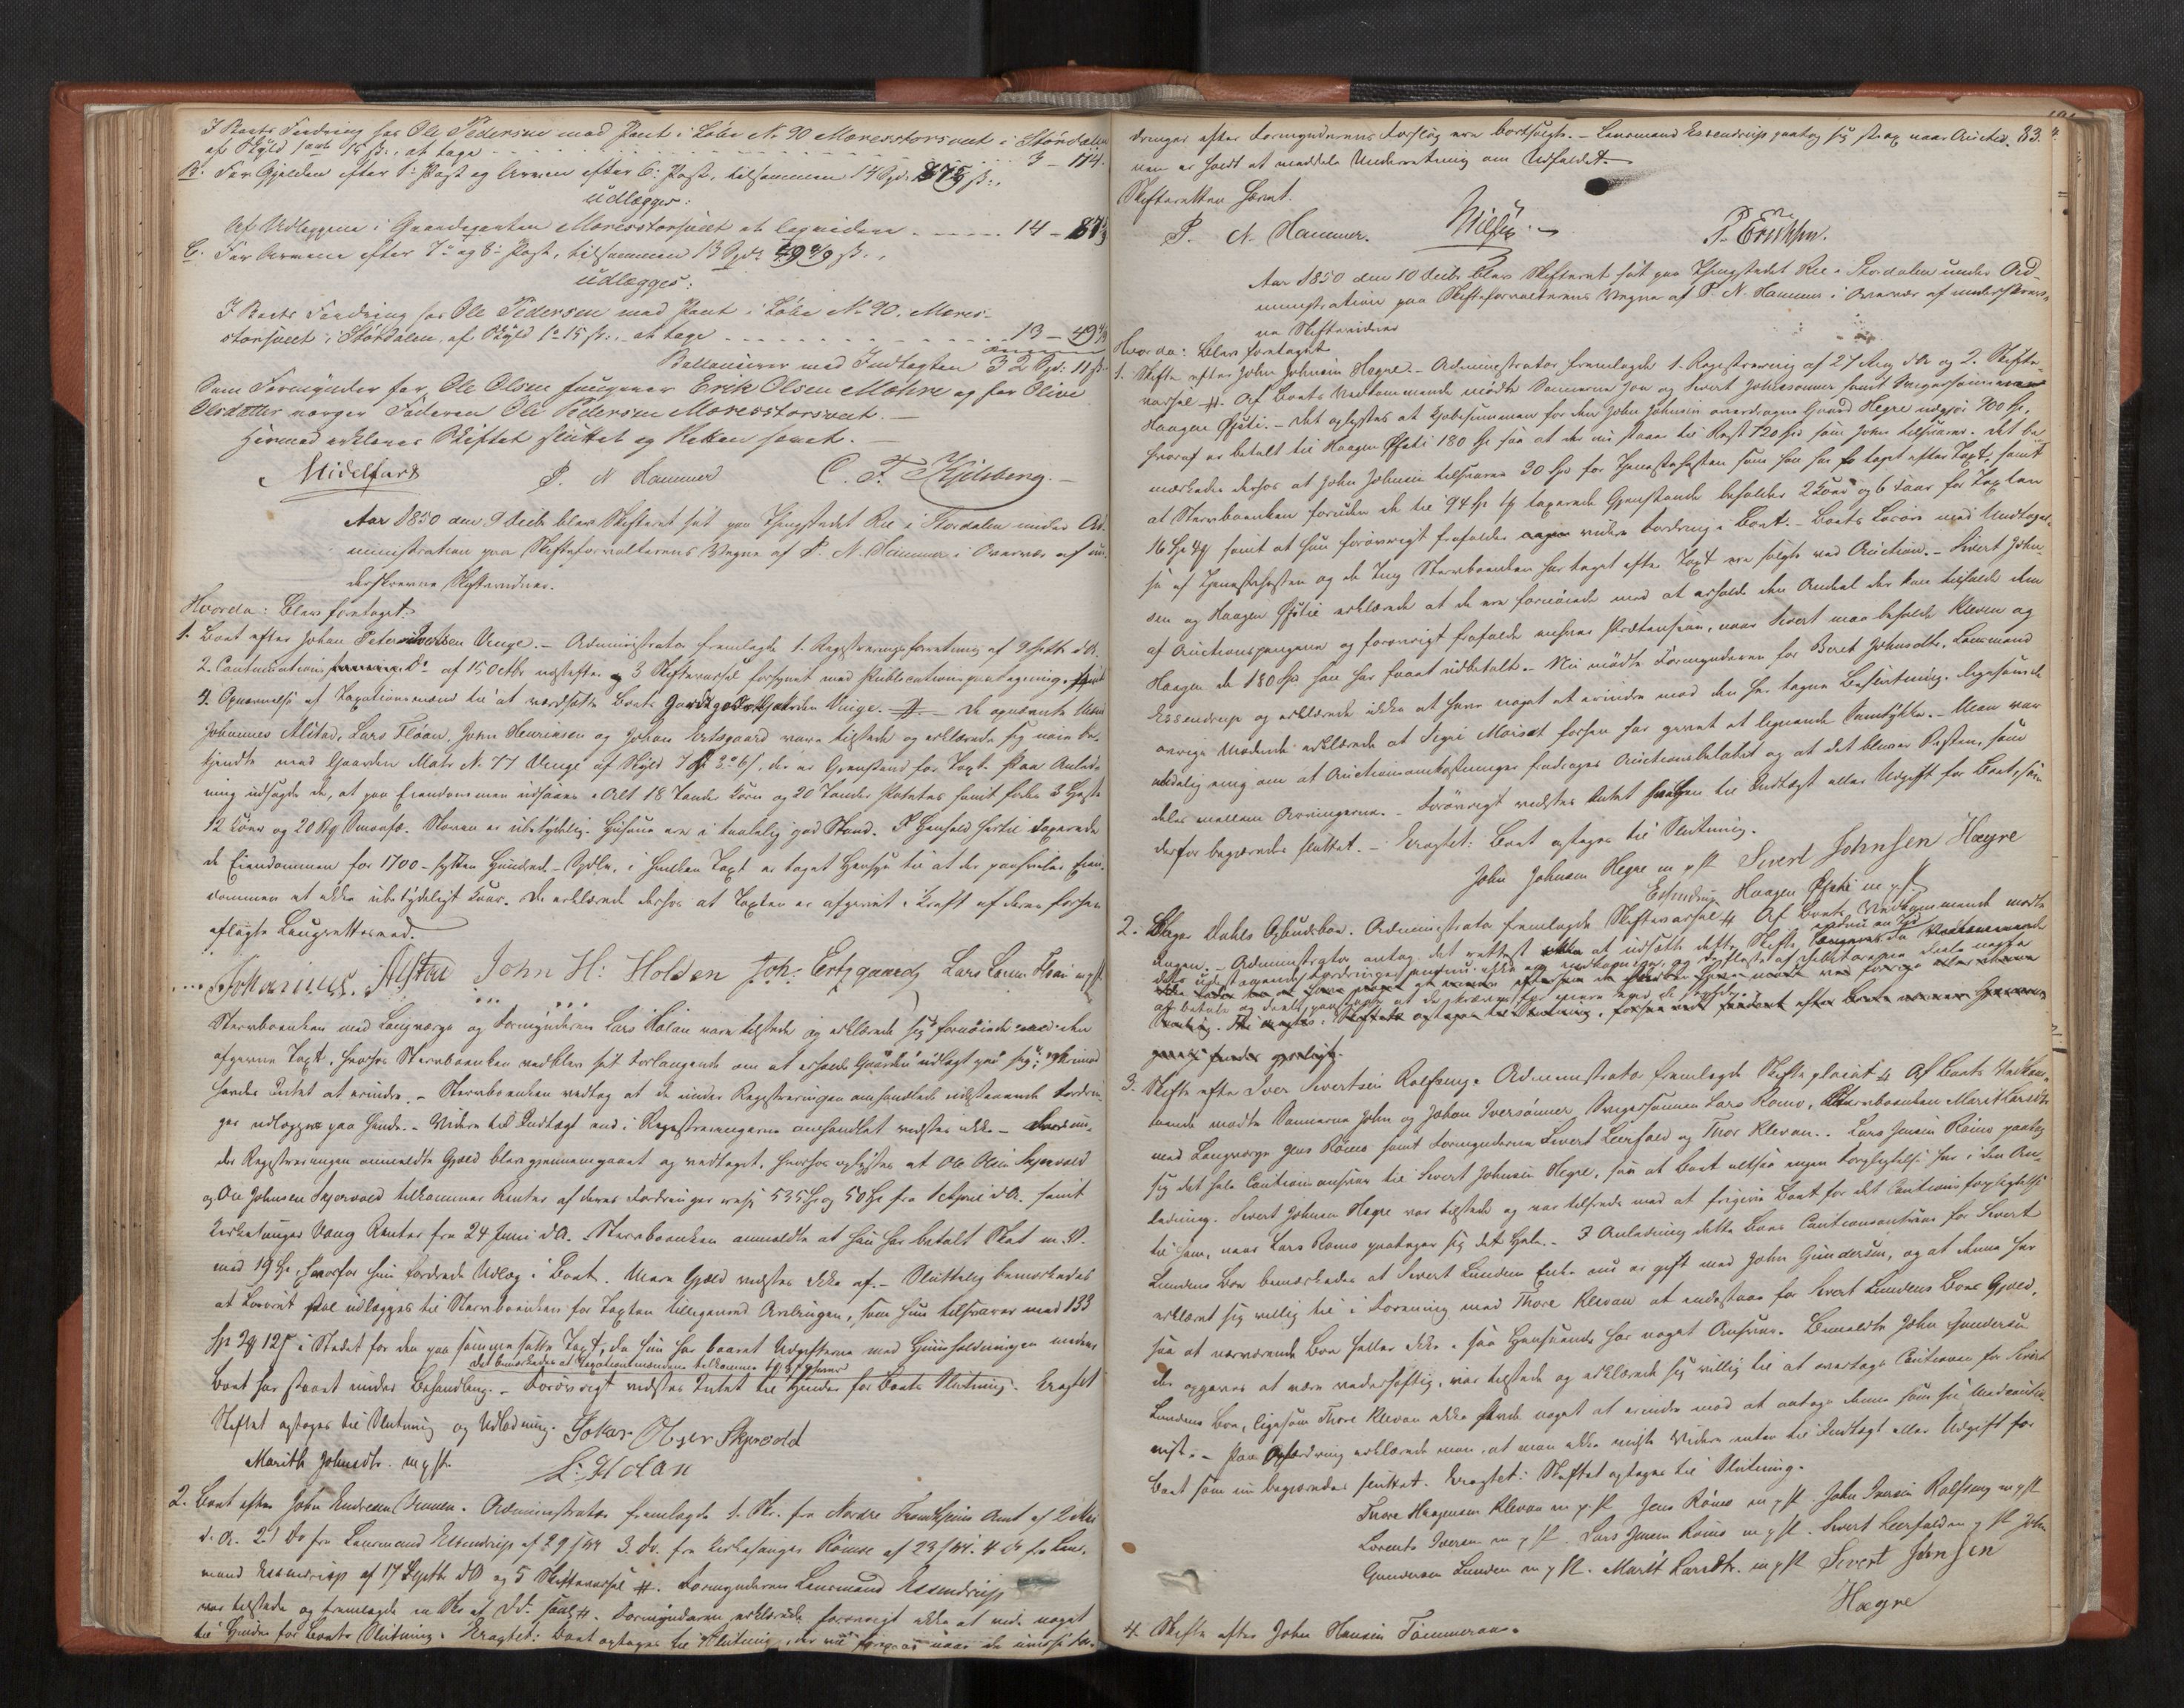 I Boets Fordring hos Ole Pedersen med Pant i Løbe N. 90 Moresstorsveet i Størdalen
af Skyld 1 ort 15 ß., at tage 3 - 114.
B. For Gjelden efter 5: Post og Arven efter 6: Post, tilsammen 14 Spd. 87 ß.,
udlægges:
Af Udlæggene i Gaardeparten Moresstorsveet at liqvidere 14 - 87
C. For Arvene efter 7de og 8: Post, tilsammen 13 Spd. 49 ß.,
udlægges:
I Boets Fordring hos Ole Pedersen med Pant i Løbe N. 90. Mores-
storsveet i Størdalen, af Skyld 1 o. 15 ß., at tage 13 - 49
Ballancerer med Indtægten 32 Spd. 11 ß.
Som Formynder for Ole Olsen fungerer Erik Olsen Mæhre og for Olive
Olsdatter værger Faderen Ole Pedersen Moresstorsveet. -
Hermed erklæres Skiftet sluttet og Retten hævet. -
Midelfart P. N Hammer C. F. Kjelsberg. -
Aar 1850 den 9 Decb. blev Skifteret sat paa Thingstedet Ree i Stordalen under Ad-
ministration paa Skifteforvalterens Vegne af P. N. Hammer i Overvær af un-
derskrevne Skiftevidner.
Hvorda: Blev foretaget:
1. Boet efter Johan Peter Iversen Venge. - Administrator fremlagde 1. Registreringsforretning af 9 Septb. d. A.
2. Continuations Do. af 15 Octbr. næstefter og 3 Skiftevarsel forsynet med Publicationspaategning. samt
4. Opnævnelse af Taxationsmænd til at værdsætte Boets Gaard Vinge. # - De opnævnte Mænd
Johannes Alstad, Lars Fløan, John Henriksen og Johan Ertsgaard vare tilstede og erklærede sig vare be-
kjendte med Gaarden Matr. N. 77 Venge af Skyld 7 d. 3 o. 6 ß, der er Gjenstand for Taxt. Paa Anled-
ning udsagde de, at paa Eiendommen udsaaes i Alt 18 Tønder Korn og 20 Tønder Poteter samt fødes 3 Heste
12 Køer og 20 Stk. Smaafæ. Skoven er ubetydelig. Husene ere i taalelig god Stand. I Henhold hertil taxerede
de Eiendommen for 1700 - sytten Hundrede - Spdlr., i hvilken Taxt er taget Hensyn til at der paahviler Eien-
dommen et ikke ubetydeligt Kaar. De erklærede derhos at Taxten er afgivet i Kraft af deres forhen
aflagte Laugrettesed.
Johannes. Alstad John H: Holden Joh: Ertzgaard Lars Larsen Fløan m. p. P.
Sterboenken med Laugværge og Formynderen Lars Holan vare tilstede og erklærede sig fornøiede med den
afgivne Taxt, hvorhos Sterboenken vedblev sit Forlangende om at erholde Gaarden udlagt paa sig, hvorimod
havdes Intet at erindre. - Sterboenken vedtog at de under Registreringen omhandlede udestaaende Fordrin-
ger udlægges paa hende. - Videre til Indtægt end i Registreringerne omhandlet vidstes ikke. - Den un-
der Registreringen anmeldte Gjæld blev gjennemgaaet og vedtaget, hvorhos oplystes at Ole Olsen Skjervold
og Ole Johnsen Skjervold tilkommer Renter af deres Fordringer resp. 535 Sp og 50 Sp fra 1 April d. A. samt
Kirkesanger Vang Renter fra 24 Juni d. A. Sterboenken anmeldte at hun har betalt Skat m. V.
med 19 Sp. hvorfor hun fordrede Udlæg i Boet. Mere Gjæld vidstes ikke af. - Sluttelig bemærkedes
at Løsøret skal udlægges til Sterboenken for Taxten tilligemed Avlingen, som hun tilsvarer med 133
Sp 2 12 ß i Stedet for den paa samme satte Taxt, da hun har baaret Udgifterne med Huusholdningen medens
det bemærkedes at Taxationsmændene tilkommer
Boet har staaet under Behandling. - Forøvrigt vidstes Intet til Hinder for Boets Slutning. Eragtet
Skiftet optages til Slutning og Udlodning. Johan Skjervold
Marith Johnsdtr. m. p. P. L: Holan
2. Boet efter John Endresen. Administrator fremlagde 1. Skr. fra Nordre Trondhjems Amt af 2 Mai
d. A. 2. Do fra Lensmand Essendrop af 29 3. Do. fra Kirkesanger Rømoe af 23 4 Do fra Lens-
mand Essendrop af 17 Septb. d. A. og 5 Skiftevarsel #. Formynderen Lensmand Essendrop
var tilstede og fremlagde en Skr. af D. D. #. Formynderen erklærede forøvrigt ikke at vide noget
til Hinder for Boets Slutning. Eragtet: Boet optages til Slutning, naar de
dringer efter Formynderens Forslag ere bortsolgte. - Lensmand Essendrop paatog sig strax naar Auctio- 83.
nen er holdt at meddele Underretning om Udfaldet. -
Skifteretten hævet.
P. N. Hammer. P. Erichsen.
Aar 1850 den 10 Decbr. blev Skifteret sat paa Thingstedet Ree i Stordalen under Ad-
ministration paa Skifteforvalterens Vegne af P. N. Hammer i Overvær af underskrev-
ne Skiftevidner
Hvorda: Blev foretaget
1. Skifte efter John Johnsen Hegre. - Administrator fremlagde 1. Registrering af 27 Aug. d. A. og 2. Skifte-
varsel #. Af Boets Vedkommende mødte Sønnerne Jon og Sivert Johnssønner samt Svigersønnen
Haagen Øfsti. - Det oplystes at Kjøbesummen for den John Johnsen overdragne Gaard Hegre udgjør 900 Sp,
hvoraf er betalt til Haagen Øfsti 180 Sp saa at der nu staaer til Rest 720 Spd som John tilsvarer. Det be-
mærkedes derhos at John Johnsen tilsvarer 30 Spd for Tjenestehesten som han har taget efter Taxt, samt
at Sterboenken foruden de til 94 Sp taxerede Gjenstande beholder 2 Køer og 6 Faar for Taxten
16 Sp samt at hun forøvrigt frafalder videre Fordring i Boet. - Boets Løsøre med Undtagel-
se af Tjenestehesten og de Ting Sterboenken har taget efter Taxt ere solgte ved Auction. - Sivert John-
sen og Haagen Øfsti erklærede at de ere fornøiede med at erholde den Andeel der kan tilfalde dem
af Auctionspengene og forøvrigt frafalde enhver Prætension, naar Sivert maa beholde Kleven og
Haagen de 180 Spd han har faaet udbetalt. - Nu mødte Formynderen for Beret Johnsdtr. Lensmand
Essendrop og erklærede ikke at have noget at erindre mod den her tagne Beslutning, ligesom de
øvrige Mødende erklærede at Sigri Moiset forhen har givet et lignende Samtykke. - Man var
uden om at Auctionsomkostninger fradrages Auctionsbeløbet og at det bliver Resten, som
deles mellem Arvingerne. - Forøvrigt vidstes Intet til Indtægt eller Udgift for Boet, som
derfor begjæredes sluttet. - Eragtet: Boet optages til Slutning.
John Johnsen Hegre m p P. Sivert Johnsen Hægre
Essendrop Haagen Øfsti m p P
2. Dahls Opbudsboe. Administrator fremlagde Skiftevarsel # Af Boets Vedkommende mødte
Ingen. - Administrator antog det rettest at udsætte dette Skifte
3. Skifte efter Iver Sivertsen Rolfseng. Administrator fremlagde Skifteplacat # Af Boets Vedkom-
mende mødte Sønnerne John og Johan Iversønner, Svigersønnen Lars Romo, Sterboenken Marit Larsdtr.
med Laugværge Jens Rømo samt Formynderne Sivert Leerfald og Thor Klevan. - Lars Jensen Rømo paatog
sig det hele Cautionsansvar til Sivert Johnsen Hegre, saa at Boet altsaa ingen Forpligtelse har i den An-
ledning. Sivert Johnsen Hegre var tilstede og var tilfreds med at frigive Boet for det Cautionsforpligtelse
til ham, naar Lars Romo paatager sig det Hele. - I Anledning dette Boes Cautionsansvar for Sivert
Lundens Boe bemærkedes at Sivert Lundens Enke nu er gift med John Gundersen, og at denne har
erklæret sig villig til i Forening med Thore Klevan at indestaae for Sivert Lundens Boes Gjæld,
saa at nærværende Boe heller ikke i saa Henseende har noget Ansvar. Bemeldte John Gundersen
der opgaves at være vederhæftig, var tilstede og erklærede sig villig til at overtage Cautionen for Sivert
Lundens Boe, ligesom Thore Klevan ikke havde noget at erindre mod at antage denne som sin Medcautio-
nist. - Paa Opfordring erklærede man, at man ikke vidste Videre enten til Indtægt eller Udgift for
Boet som nu begjæredes sluttet. Eragtet: Skiftet optages til Slutning.
Thore Haagensen Klevan m p P. Jens Rømo m p P John Iversen Rolfseng m p P
Lorents Iversen m p P. Lars Jensen Rømo m p P. Sivert Leerfald m p P. John
Gundersen Lunden m p P. Marit Larsdtr. m p P Sivert Johnsen
Hægre
4. Skifte efter John Hansen Tømmeraas.